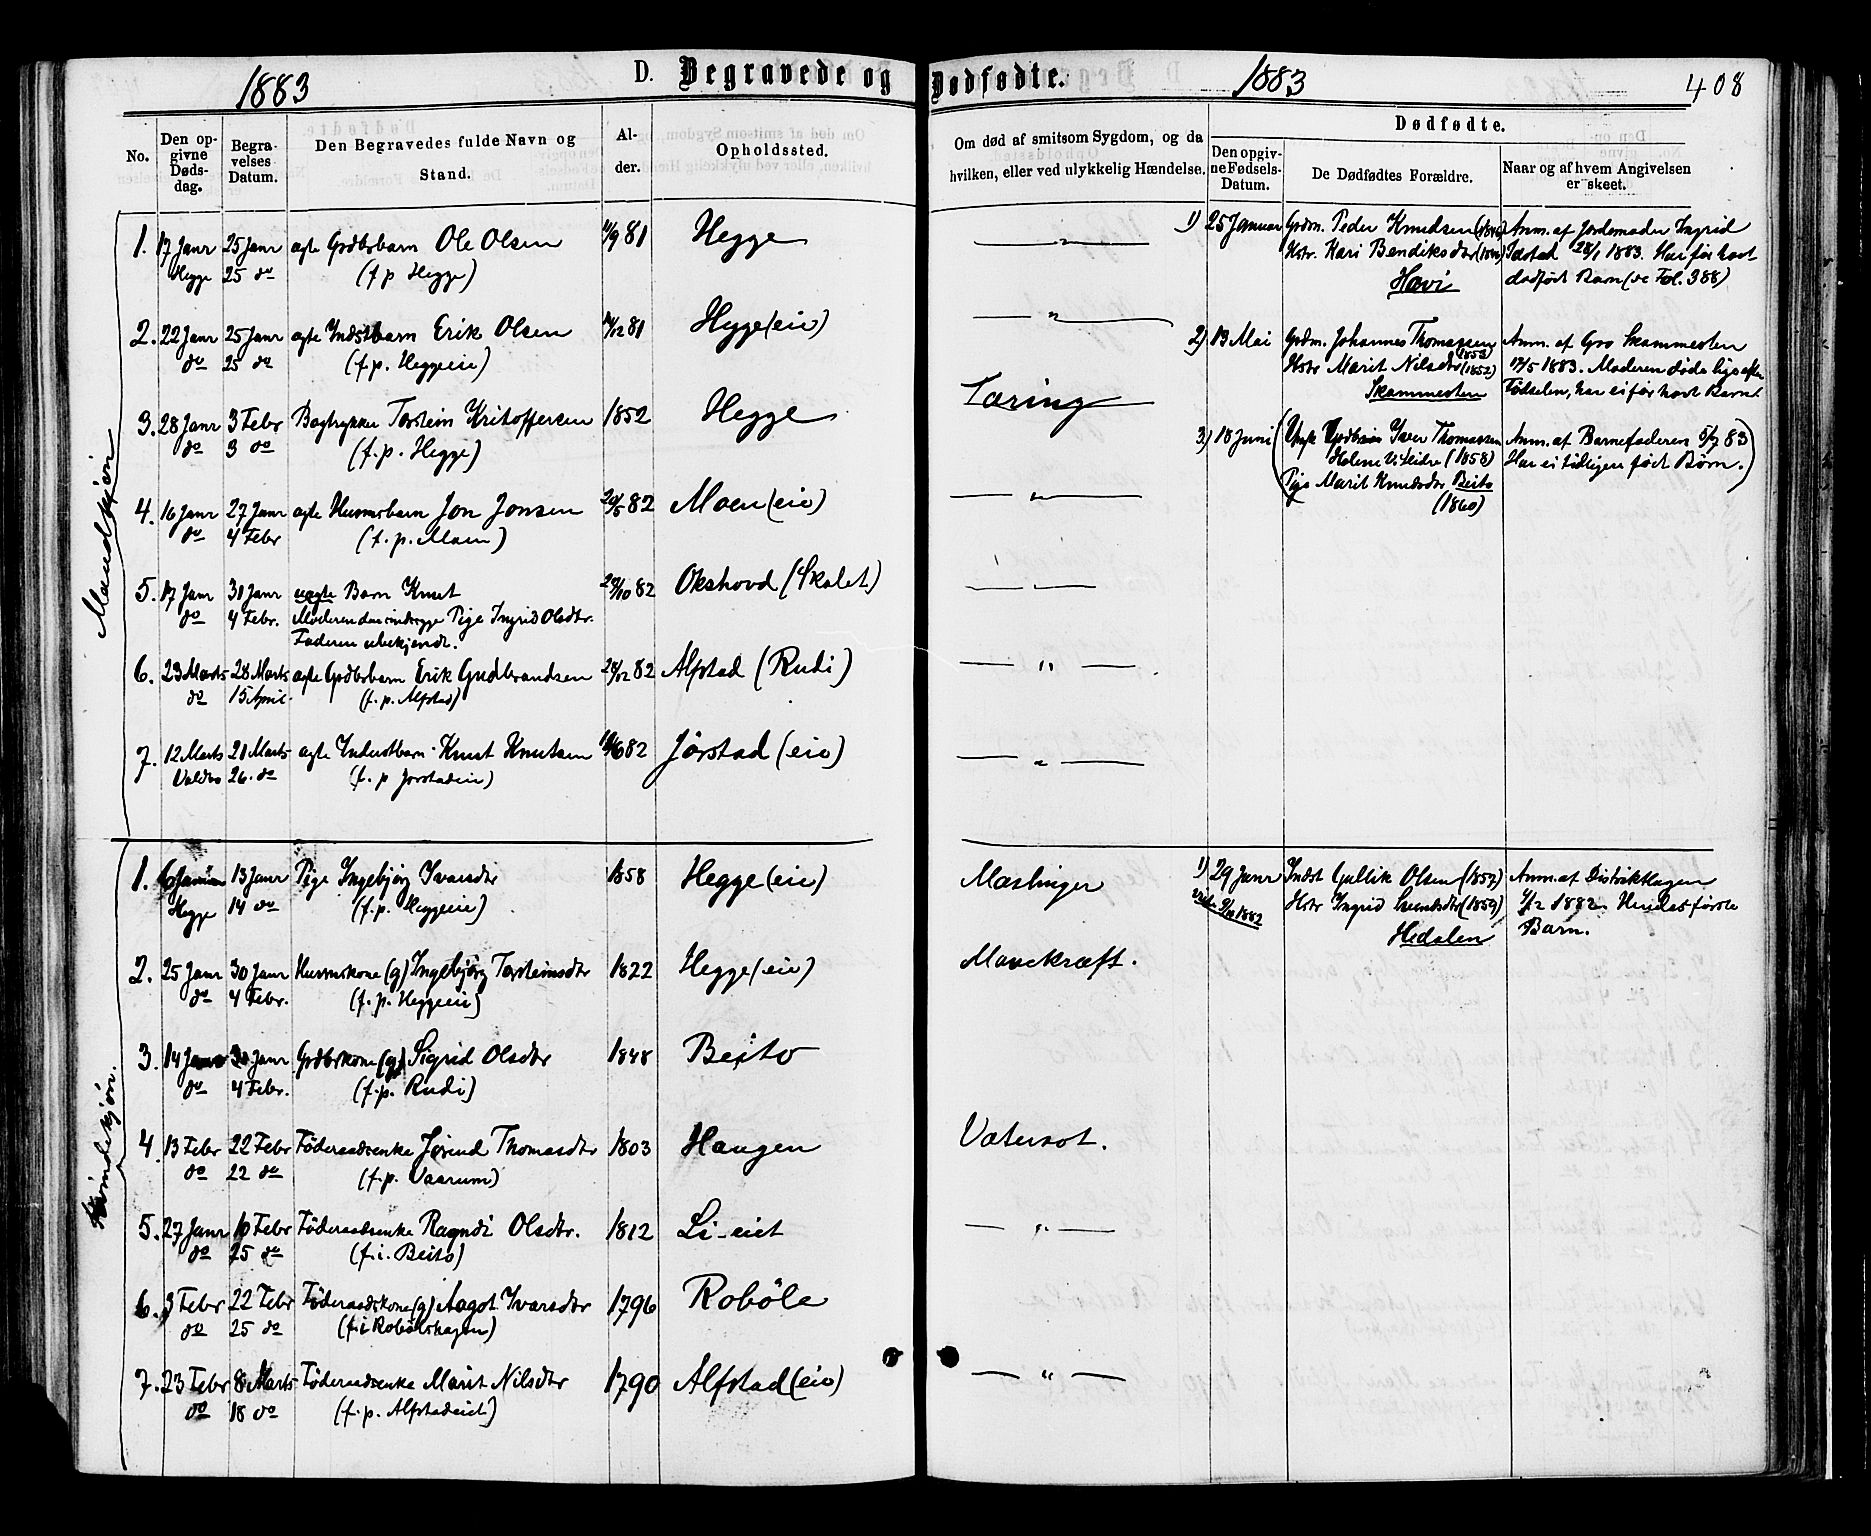 1883 D. Begravede og Dødfødte. 1883 408
No.
Den opgivne Dødsdag.
Begravelses Datum.
Den Begravedes fulde Navn og Stand.
Alder.
Opholdssted.
Om død af smitsom Sygdom, og da hvilken, eller ved ulykkelig Hændelse.
Dødfødte.
Den opgivne Fødsels-Datum.
De Dødfødtes Forældre.
Naar og af hvem Angivelsen er skeet.
Mandkjøn
1. 17 Janr 25 Janr ægte Grdbrbarn Ole Olsen 81 Hegge — " —
Hegge 25 do (f. p. Hegge)
2. 22 Janr 25 Janr ægte Indstbarn Erik Olsen 81 Hegge (eie) — " —
do 25 do (f. p. Heggeeie)
3. 28 Janr 3 Febr Torstein Kristoffersen 1852 Hegge Tæring
do 3 do (f. p. Hegge)
4. 16 Janr 27 Janr ægte Husmbarn Jon Jonsen 29/5 82 Moen (eie) — " —
do 4 Febr (f. p. Moen)
5. 17 Janr 31 Janr uægte Barn Knut 29/10 82 Okshovd (Skolet) — " —
do 4 Febr. Moderen Pige Ingrid Olsdtr.
Faderen ubekjendt.
6. 23 Marts 28 Marts ægte Grdbrbarn Erik Gudbrandsen 28/12 82 Alfstad (Rudi) — " —
do 15 April (f. p. Alfstad)
7. 12 Marts 21 Marts ægte Inderstbarn Knut Knutsen 82 Jørstad (eie) — " —
Valdres 26. do (f. p. Jørstadeie)
1) 25 Januar Grdm. Peder Knudsen Anm. af Jordemoder Ingrid
Hstr. Kari Bendiksdtr 28/1 1883. Har før havt
Høvi dødfødt Barn (se Fol. 388)
2) 13 Mai Grdm. Johannes Thomassen (1853) Anm. af Gro Skammesten
Hstr Marit Nilsdtr (1852) 17/5 1883. Moderen døde lige efter
Skammesten Fødselen, har ei før havt Barn.
3) 18 Juni (Iver Thomassen Anm. af Barnefaderen 5/7 83
(1858) Har ei tidligere født Børn.)
Pige Marit Knudsdtr Beito
(1860)
Kvindekjøn.
1. 6 Januar 13 Janr Pige Ingebjørg Ivarsdtr 1858 Hegge (eie) Mæslinger
Hegge 14 do (f. p. Heggeeie)
2. 25 Janr 30 Janr Husmskone (g) Ingebjørg Torsteinsdtr 1822 Hegge (eie) Mavekræft.
do 4 Febr. (f. p. Heggeeie)
3. 14 Janr 30 Janr Grdbrkone (g) Sigrid Olsdtr 1848 Beito
do 4 Febr. (f. p. Rudi)
4. 13 Febr 22 Febr Føderaadsenke Jørind Thomasdtr 1803 Haugen Vatersot.
do 22 do (f. p. Vaarum)
5. 27 Janr 10 Febr Føderaadsenke Ragndi Olsdtr. 1812 Li-eiet — " —
do 25 do (f. i. Beito)
6. 3 Febr 22 Febr Føderaadskone (g) Aagot Ivarsdtr 1796 Robøle
do 25 do (f. i. Robølshagen)
7. 23 Febr 8 Marts Føderaadsenke Marit Nilsdtr 1790 Alfstad (eie) — " —
do 18 do (f. p. Alfstadeiet)
1) 29 Janr Indst Gullik Olsen (1857) Anm. af Distriktlægen
1882 Hstr Ingrid (1859) 1882. Hendes første
Hedalen Barn.